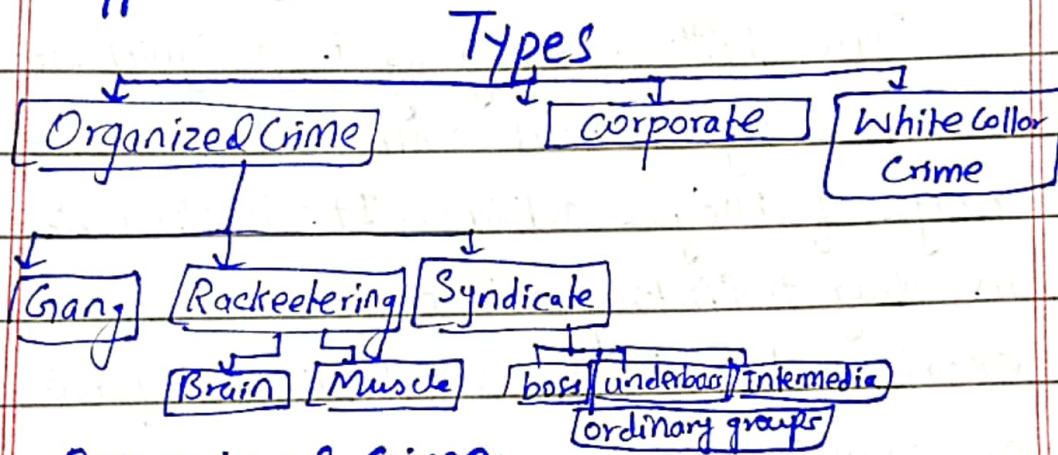 Types
Organized Crime
Corporate
White Collar
Crime
Gang
Racketering
Syndicate
Brain
Muscle
boss
underboss
Intermedia
ordinary groups